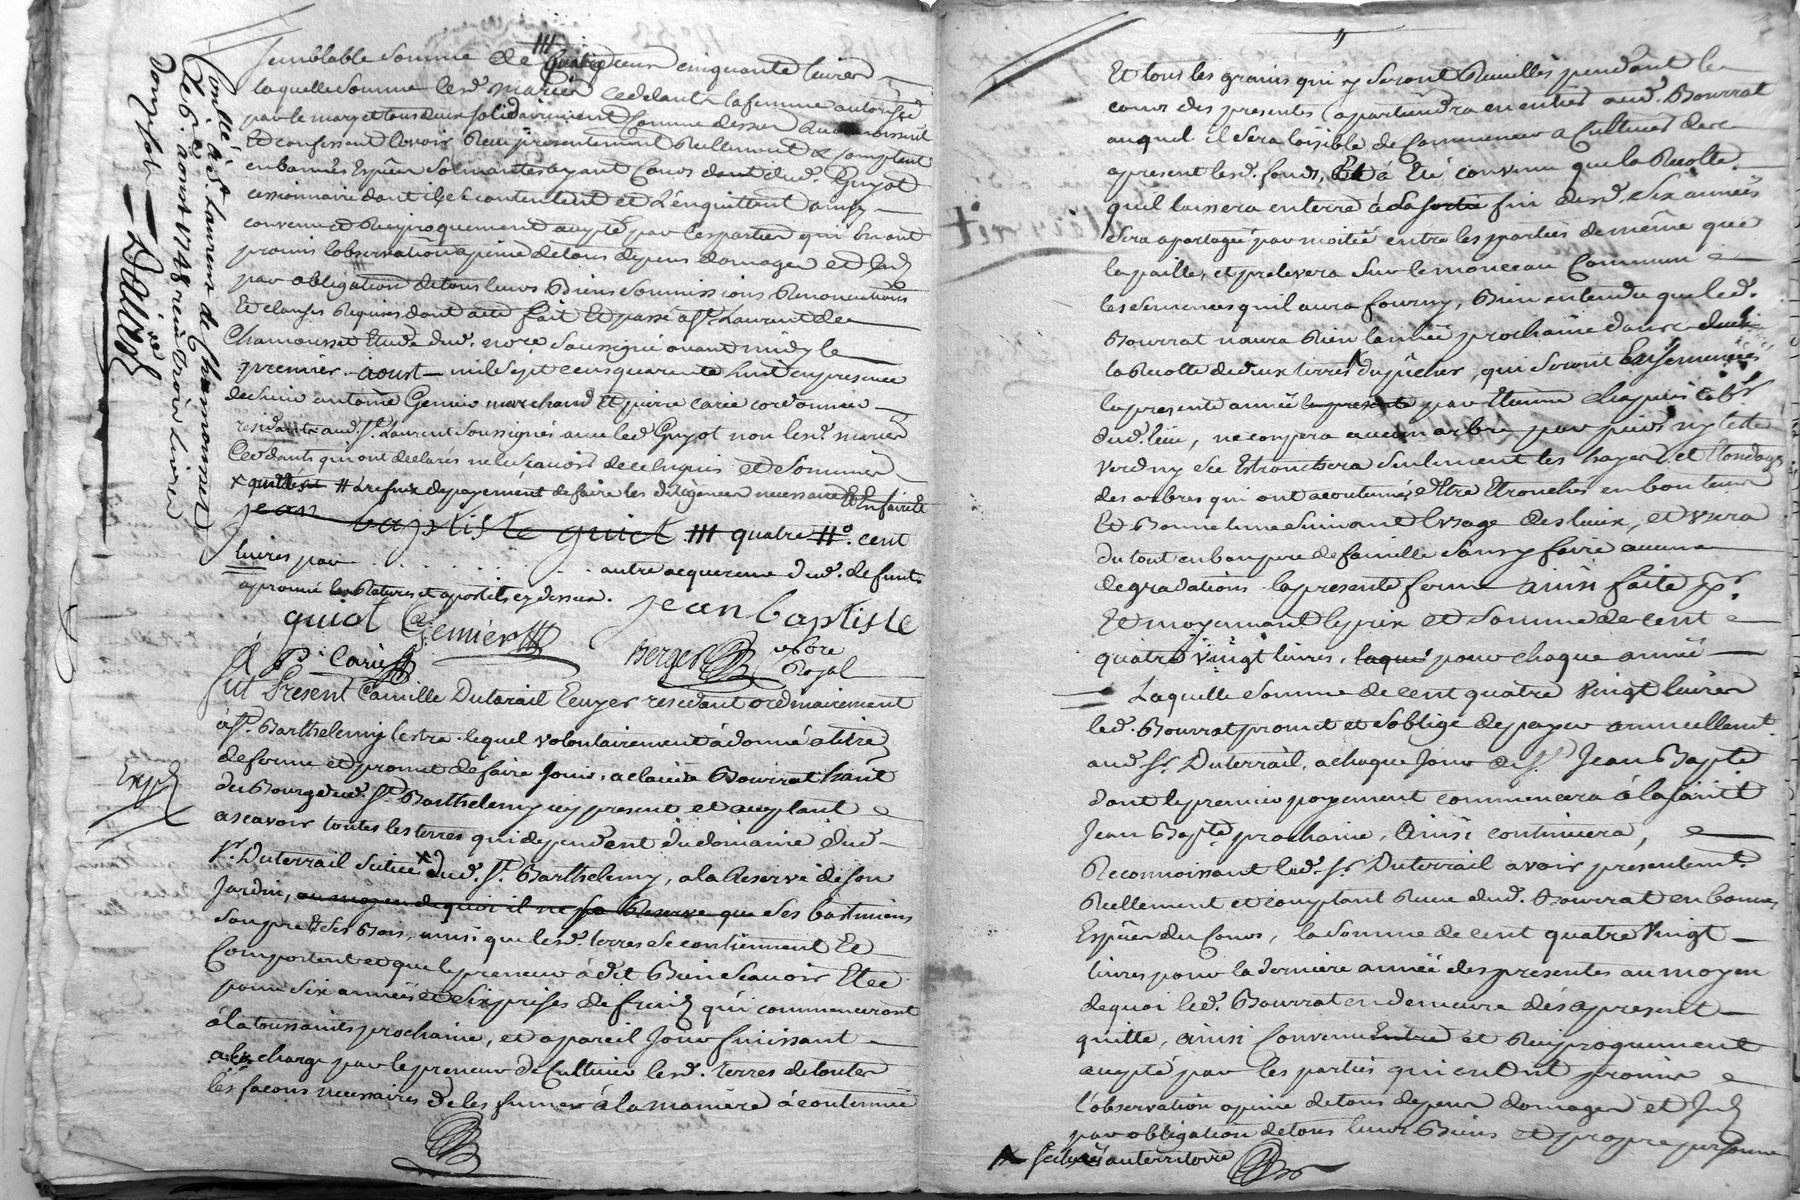 semblable somme de quatre cent cinquante livres
laquelle somme lesd. mariés ceddants la femme autorisée
par le mary et tous deux solidairement comme dessus reconnoissent
Et confessent avoir Reçu présentement Reellement & comptant
en bonnes Espèces sonnantes ayant Cours dudt. Guyot
cessionnaire dont ils se contentent et L'enquittent ainsy
convenu et Reciproquement accepté par les parties qui En ont
promis l'observation a peine de tous depens domages et
par obligation de tous leurs Biens soumissions Renonciations
Et clauses Requises dont acte fait Et passé a St. Laurent de
Chamousset Etude dud. nore soussigné avant midy le
premier aoust mil sept cens quarante huit en presence
de sieur antoine Genier marchand Et pierre carie cordonnier
residants aud. St. Laurent soussignés avec led Guyot non lesd. mariés
Ceddants qui ont declarés ne le sçavoir de ce Enquis et sommés
x # a refuse de payement de faire les diligences necessaires
jean baptiste guiot III quatre #o. cent
livres par . . . . . . autre acquereur dud. defunt
aprouvé les Ratures et apostils cy dessus.
guiot Genier jean baptiste
P. Carie Berger nore Royal
Fut Present Camille Duterail Ecuyer residant ordinairement
à St. Barthelemy lestra lequel volontairement a donné a titre
de ferme et promet de faire Jouir, a claude Bourrat
du Bourg dud. St. Barthelemy icy present et acceptant
a scavoir toutes les terres qui dependent du domaine dud.
Sr. Duterrail x dud. St. Barthelemy, a la Reserve de son
Jardin, au moyen de quoi il ne se Reserve que ses bastimens
son pré Et ses Bois, ainsi que lesd. terres se contiennent Et
Comportent et que le preneur a dit Bien scavoir Et ce
pour six années et six prises de fruits qui commenceront
à la toussaints prochaine, et a pareil Jour finissant
a la charge par le preneur de Cultiver lesd. terres de toutes
les façons necessaires de les fumer à la maniere accoutumée
Contollé à St. Laurent de Chamousset
Le 6. aout 1748 reçu trois livres
douze sols
Exp.
Et tous les grains qui y seront Recueillés pendant le
cours des presentes apartiendra en entier aud. Bourrat
auquel il sera loisible de Commencer a Cultiver des
a present lesd. fonds, Et a Eté convenu que la Recolte
quil laissera en terre à la sortie fin desd. six années
sera apartagée par moitié entre les parties de même que
la paille, et prelevera sur le monceau Commun
les semences quil aura fourny, Bien entendu que led.
Bourrat naura Rien lannée prochaine dans
la Recolte de deux terres du rucher, qui seront Ensemencées
la presente année la presente par Etienne
dud. lieu, ne coupera aucun arbre par pied ny tette
verd ny sec Etronchera seulement les hayes et
des arbres qui ont acoutumés d'Etre Etronchés en bonne
Et Bonne lune suivant l'usage des lieux, et usera
du tout en bon pere de famille sans y faire aucune
degradation. la presente ferme ainsi faite
Et moyennant le prix et somme de cent
quatre vingt livres, laqué pour chaque année
Laquelle somme de cent quatre vingt livres
led. Bourrat promet et soblige de payer annuellemt.
aud. Sr. Duterrail, a chaque Jour de St. Jean Bapte
dont le premier payement commencera à la saint
Jean Bapte prochaine, ainsi continuera,
Reconnoissant led. Sr. Duterrail avoir presentemt.
Reellement et comptant Receu dud. Bourrat en bonnes
Espèces du Cours, la somme de cent quatre vingt
livres pour la derniere année des presentes au moyen
de quoi led. Bourrat en demeure dès apresent
quitte, ainsi Convenu entre et Reciproquement
accepté par les parties qui en ont promis
l'observation a peine de tous depens domages et
par obligation de tous leurs Biens et propre personne
x scitués au territoire